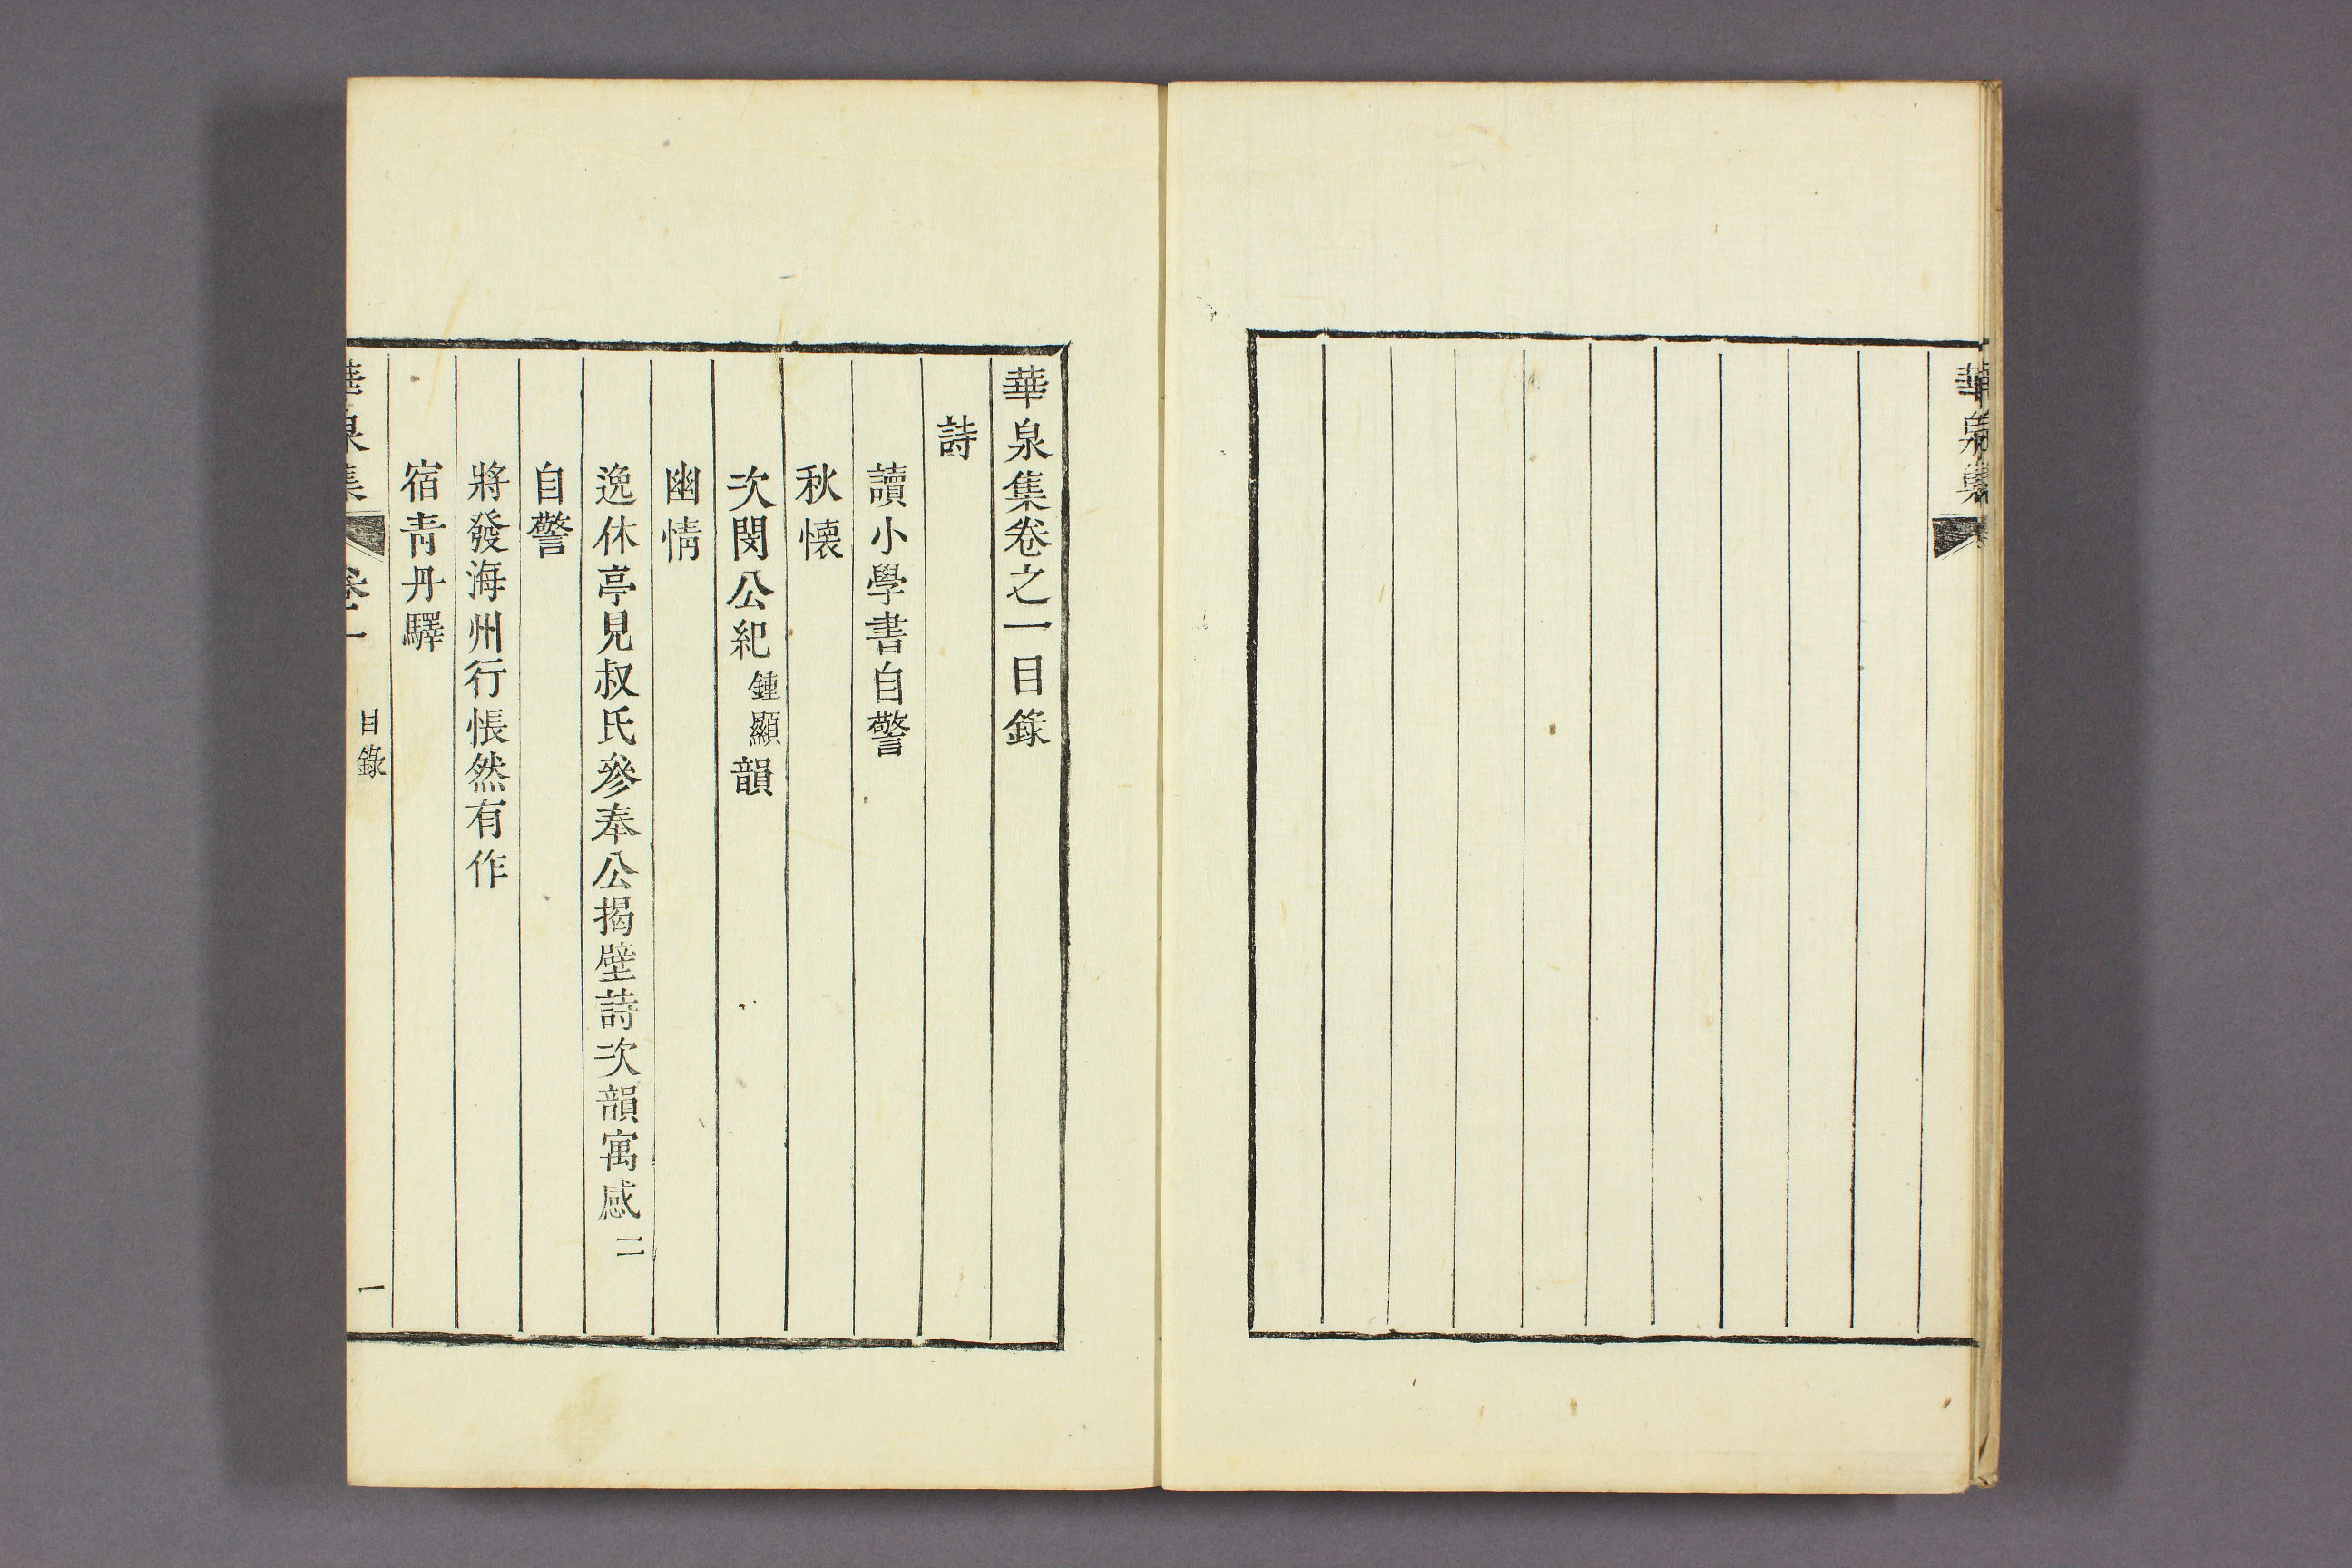 華泉集
華泉集卷之一目錄
詩
讀小學書自警
秋懷
次閔公紀鍾顯韻
幽情
逸休亭見叔氏參奉公揭壁詩次韻寓感二
自警
將發海州行悵然有作
宿靑丹驛
華泉集 卷之一 目錄 一